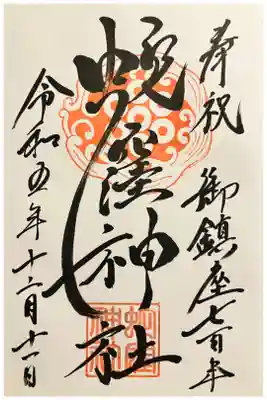 奉祝 御鎮座七百年
蛇窪神社
令和五年十二月十一日